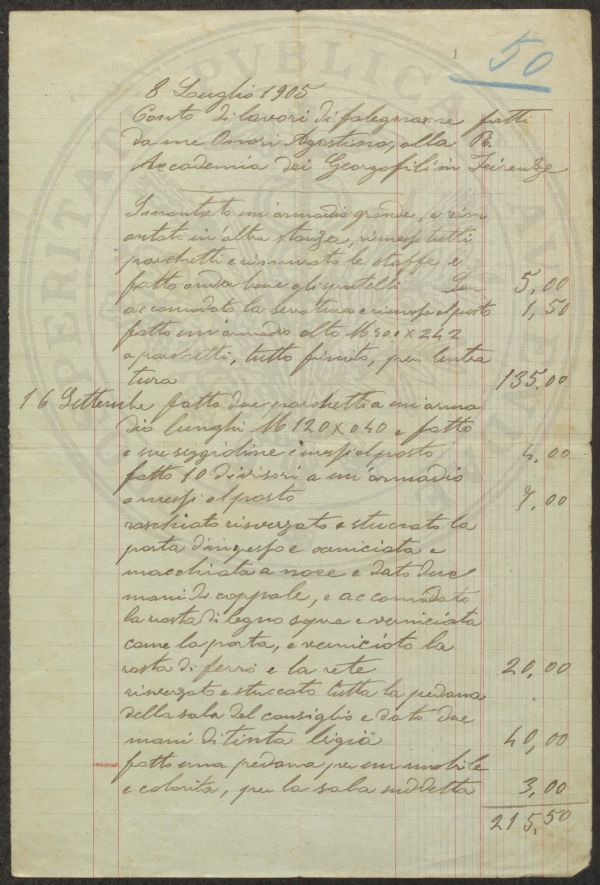 1
50
8 Luglio 1905
Conto di lavori di falegname fatti
da me Onori Agostino, alla R.
Accademia dei Georgofili in Firenze
Smontato un armadio grande, e rim
ontato in altra stanza, rimessi tutti
palchetti e rimurato le staffe e
fatto andar bene gli sportelli 5,00
accomodato la serratura e rimessa al posto 1,50
fatto un armadio alto M 400 x 242
a palchetti, tutto finito, per l'entra
tura 135,00
16 Settembre fatto due palchetti a un arma
dio lunghi M 120 x 040 e fatto
e sue seggioline e messi al posto 4,00
fatto 10 divisori a un armadio
e messi al posto 7,00
raschiato risverzato e stuccato la
porta d'ingresso e verniciata e
macchiata a noce e dato due
mani di coppale, e accomodato
la rosta di legno sopra e verniciata
come la porta, e verniciato la
rosta di ferro e la rete 20,00
risverzato e stuccato tutta la pedana
della sala del consiglio e dato due
mani di tinta bigia 40,00
fatto una pedana per un mobile
e colorita, per la sala suddetta 3,00
215,50
PROSPERITATI PUBLICAE AUGENDAE